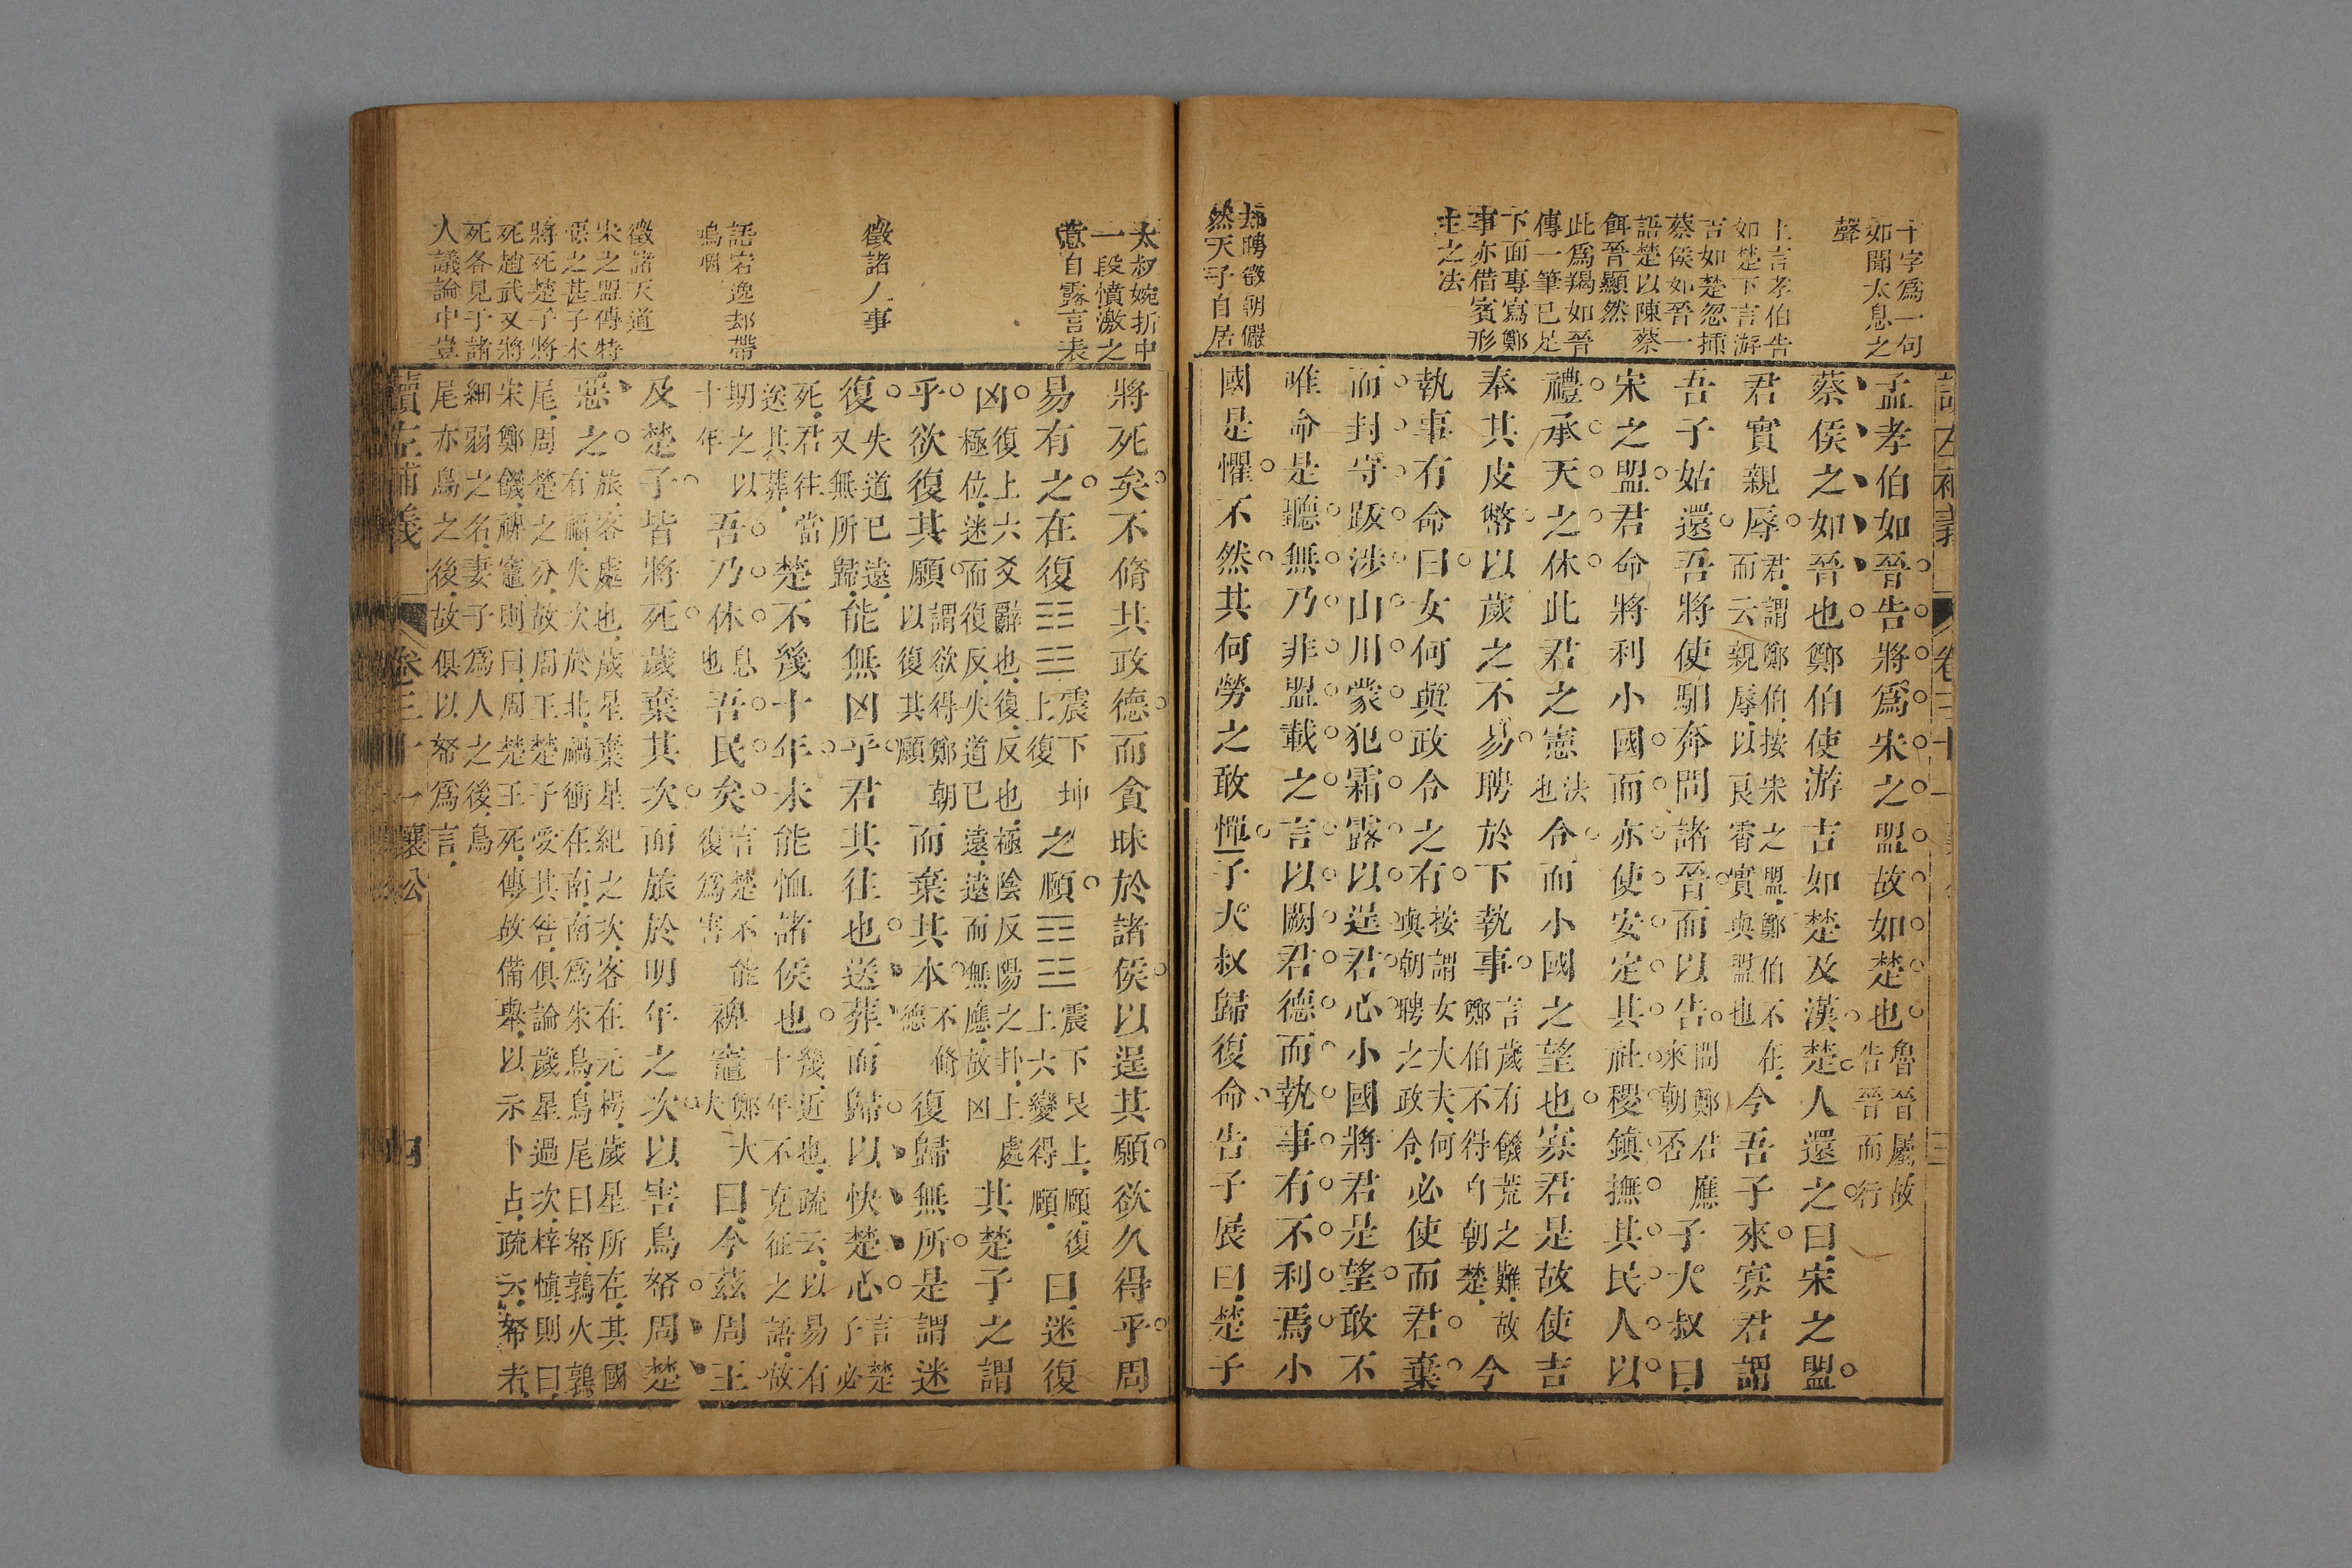 讀左補義 卷三十一 襄公 三
十字爲一句
如聞太息之
聲
上言孝伯告
如楚下言游
吉如楚忽插
蔡侯如晉一
語楚以陳蔡
餌晉顯然
此爲羯如晉
傳一筆已足
下面專寫鄭
事亦借賓形
主之法
却聘徵朝儼
然天子自居
孟孝伯如晉告將爲宋之盟故如楚也魯晉屬故告晉而行
蔡侯之如晉也鄭伯使游吉如楚及漢楚人還之曰宋之盟
君實親辱君謂鄭伯按宋之盟鄭伯不在而云親辱以良霄實與盟也今吾子來寡君謂
吾子姑還吾將使馹奔問諸晉而以告問鄭君應來朝否子大叔曰
宋之盟君命將利小國而亦使安定其社稷鎮撫其民人以
禮承天之休此君之憲法也令而小國之望也寡君是故使吉
奉其皮幣以歲之不易聘於下執事言歲有饑荒之難故鄭伯不得自朝楚今
執事有命曰女何與政令之有按謂女大夫何與朝聘之政令必使而君棄
而封守跋涉山川蒙犯霜露以逞君心小國將君是望敢不
唯命是聽無乃非盟載之言以闕君德而執事有不利焉小
國是懼不然其何勞之敢憚子大叔歸復命告子展曰楚子
太叔婉折中
一段憤激之
意自露言表
徵諸人事
語宕逸却帶
嗚咽
徵諸天道
宋之盟傳特
惡之甚子木
將死楚子將
死趙武又將
死各見于諸
人議論中豈
將死矣不脩其政德而貪昧於諸侯以逞其願欲久得乎周
易有之在復䷗震下坤上復之頤䷚震下艮上頤復上六變得頤曰迷復
凶復上六爻辭也復反也極陰反陽之卦上處極位迷而復反失道已遠遠而無應故凶其楚子之謂
乎欲復其願謂欲得鄭朝以復其願而棄其本不脩德復歸無所是謂迷
復失道已遠又無所歸能無凶乎君其往也送葬而歸以快楚心言楚子必
死君往當送其葬楚不幾十年未能恤諸侯也幾近也疏云以易有十年不克征之語故
期之以十年吾乃休息也吾民矣言楚不能復爲害裨竈鄭大夫曰今茲周王
及楚子皆將死歲棄其次而旅於明年之次以害鳥帑周楚
惡之旅客處也歲星棄星紀之次客在元枵歲星所在其國有福失次於北禍衝在南南爲朱鳥鳥尾曰帑鶉火鶉
尾周楚之分故周王楚子受其咎俱論歲星過次梓愼則曰宋鄭饑裨竈則曰周楚王死傳故備舉以示卜占疏云帑者
細弱之名妻子爲人之後鳥尾亦鳥之後故俱以帑爲言
讀左補義 卷三十一 襄公 四